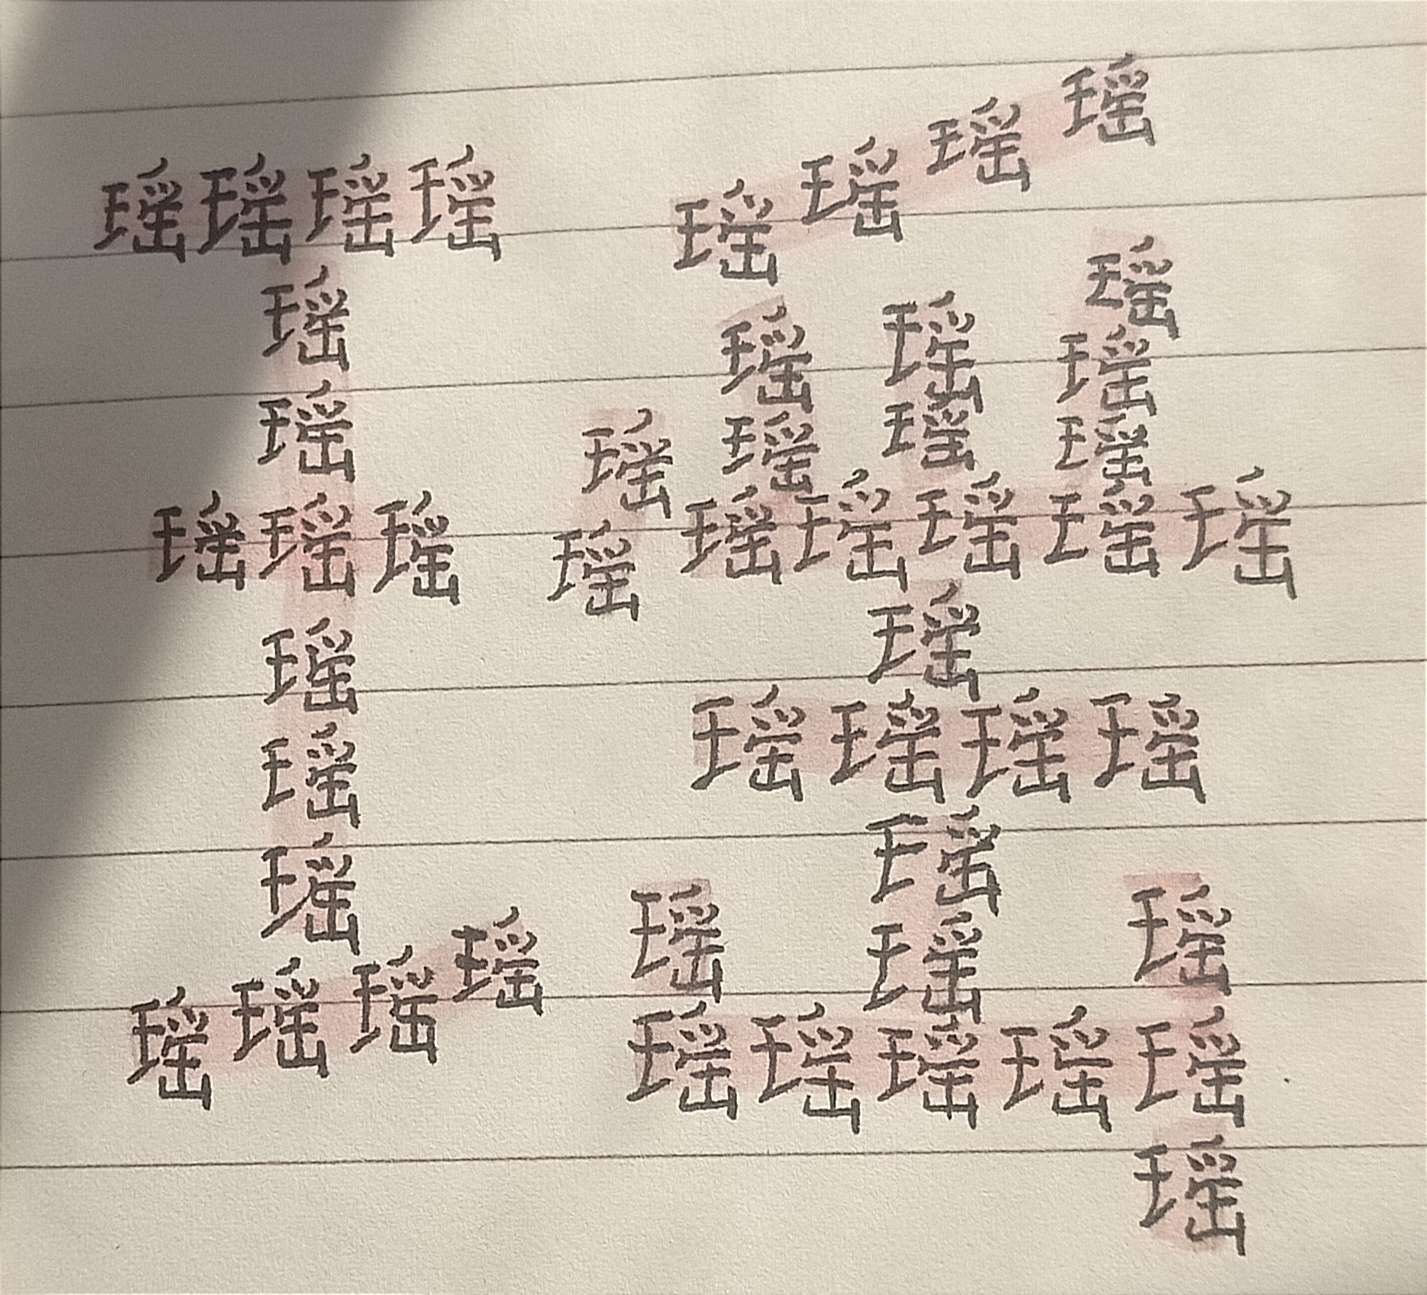 瑶瑶瑶瑶 瑶瑶瑶瑶
瑶 瑶瑶瑶
瑶 瑶瑶瑶瑶
瑶瑶瑶 瑶瑶瑶瑶瑶瑶
瑶 瑶
瑶 瑶瑶瑶瑶
瑶 瑶
瑶瑶瑶瑶 瑶瑶瑶
瑶瑶瑶瑶瑶
瑶